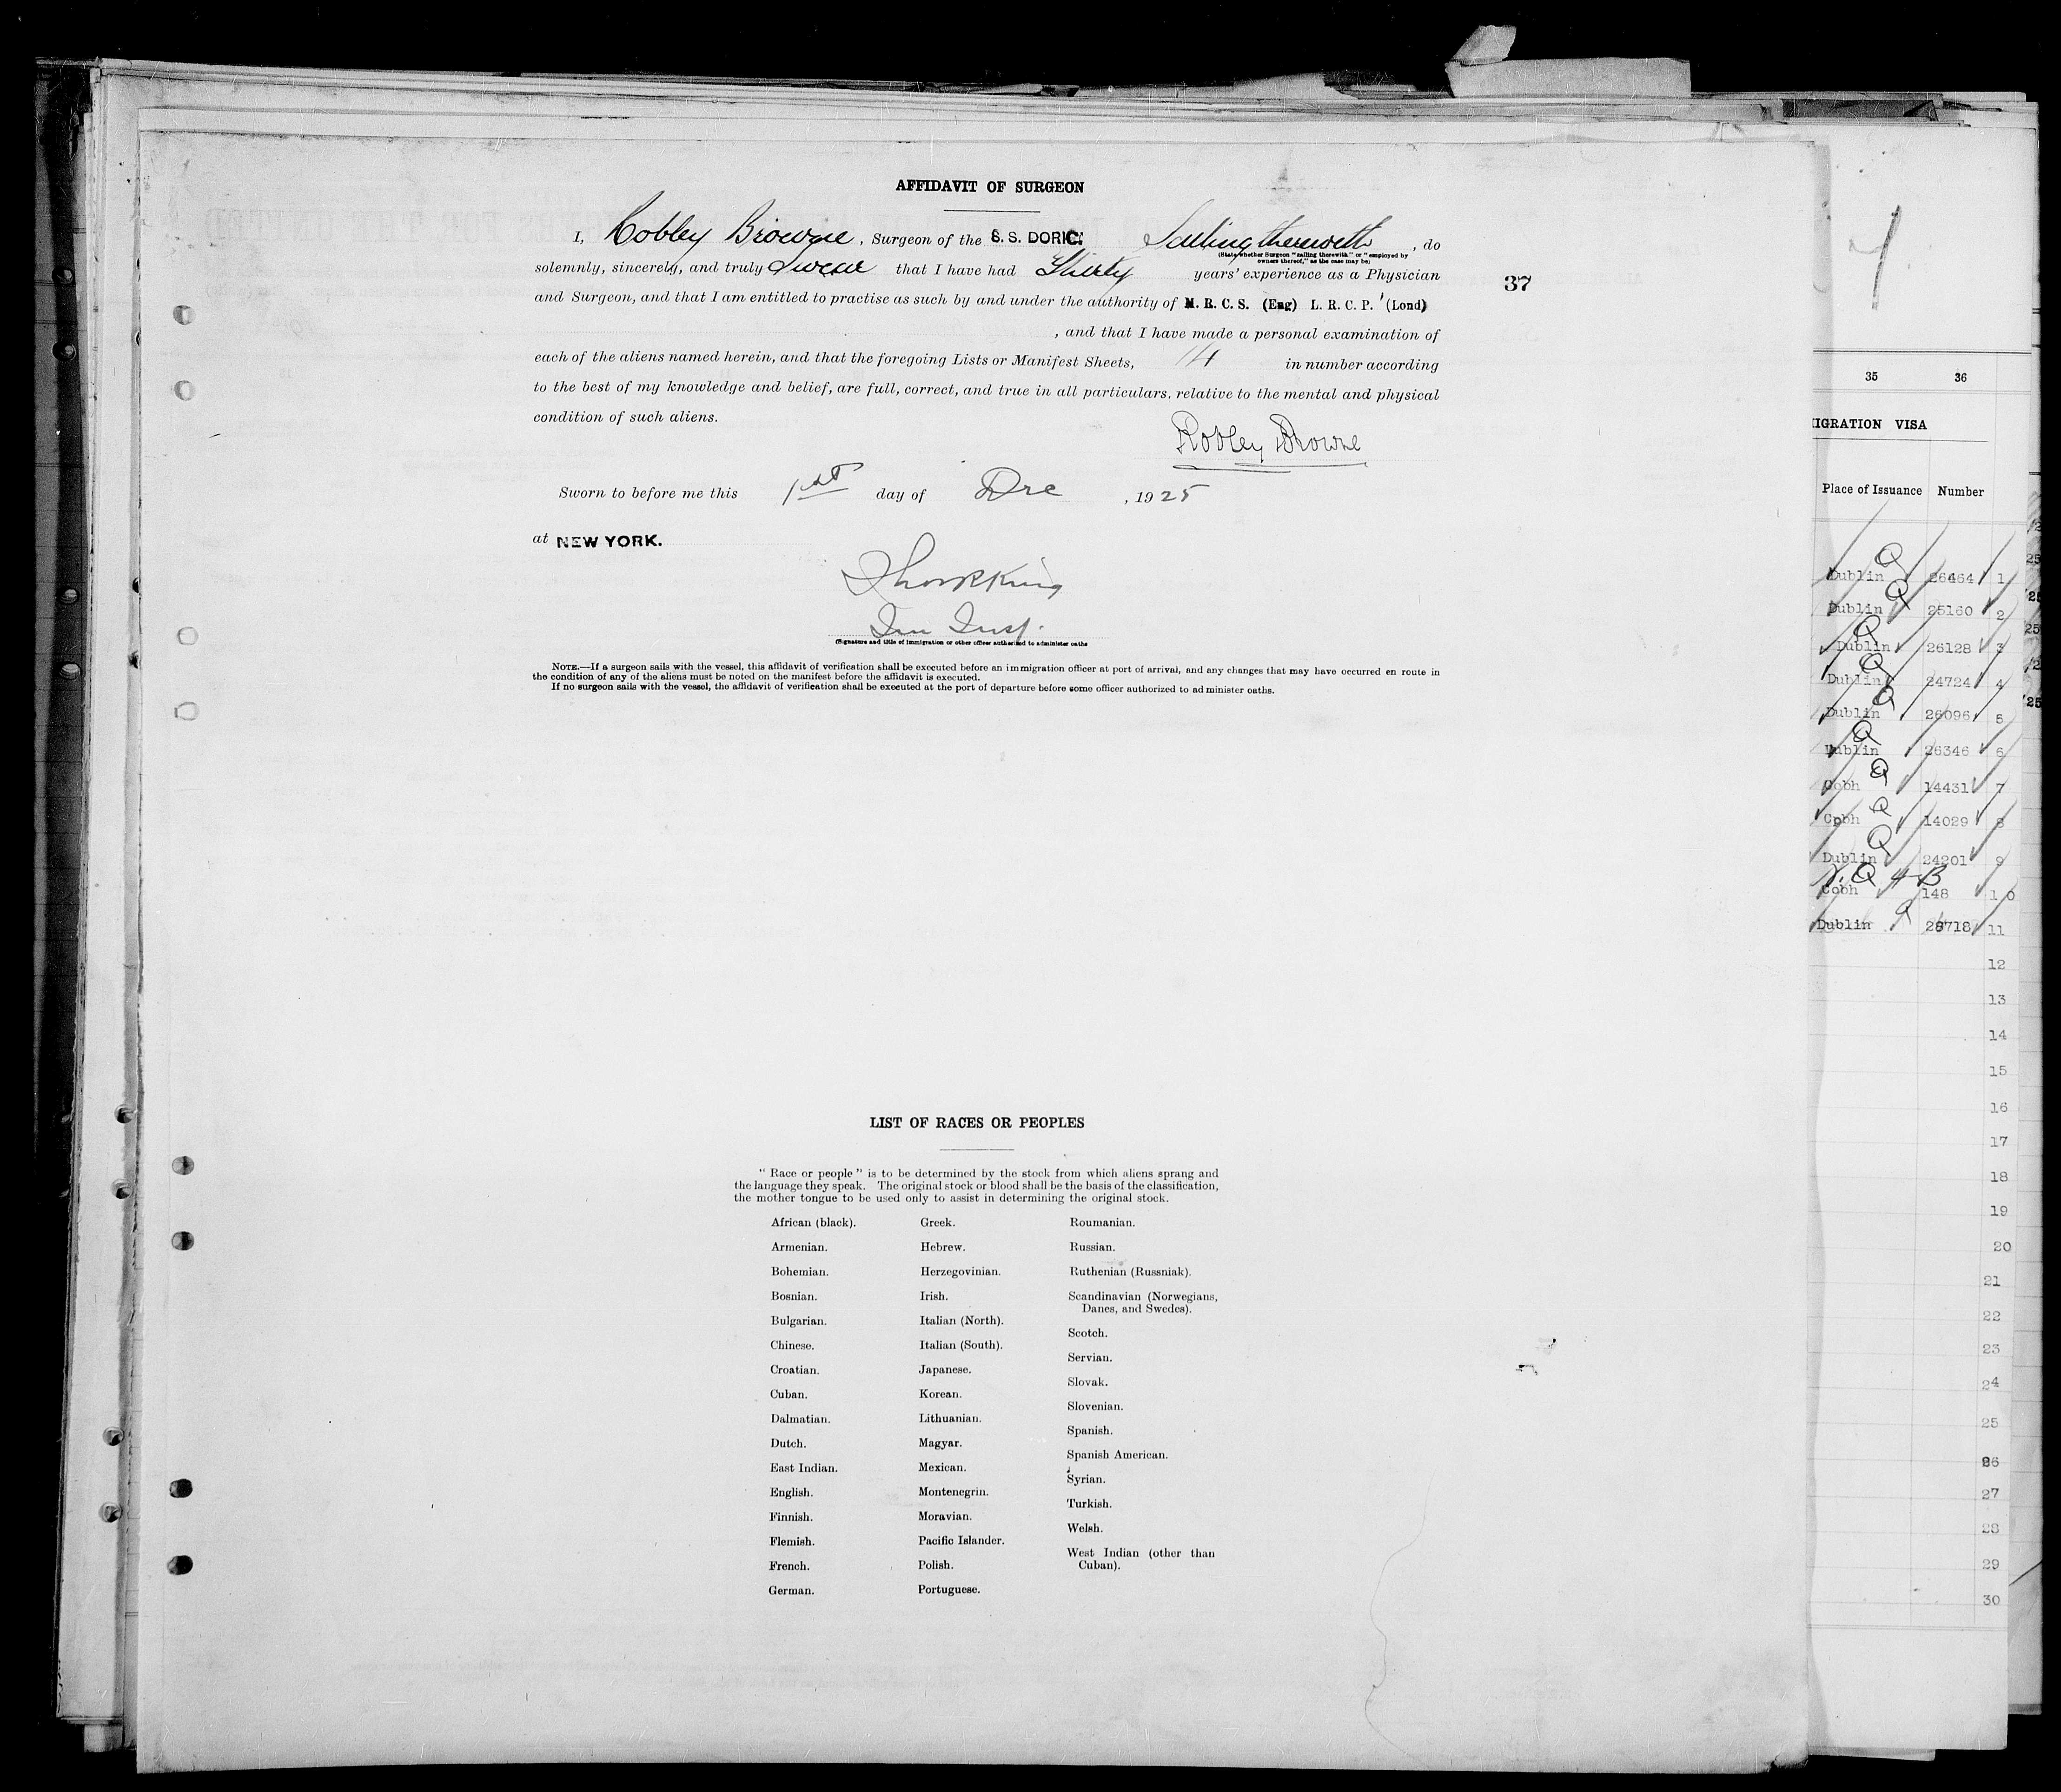 AFFIDAVIT OF SURGEON
I, Robley Browne, Surgeon of the S. S. DORIC. Sailing therewith, do
(State whether Surgeon "sailing therewith" or "employed by
owners thereof," as the case may be)
solemnly, sincerely, and truly Swear that I have had Thirty years' experience as a Physician
37
and Surgeon, and that I am entitled to practise as such by and under the authority of M. R. C. S. (Eng) L. R. C. P. (Lond)
, and that I have made a personal examination of
each of the aliens named herein, and that the foregoing Lists or Manifest Sheets, 14 in number according
to the best of my knowledge and belief, are full, correct, and true in all particulars, relative to the mental and physical
condition of such aliens.
Robley Browne
Sworn to before me this 1st day of Dec, 1925
at NEW YORK.
Imm Insp.
(Signature and title of immigration or other officer authorized to administer oaths
NOTE.—If a surgeon sails with the vessel, this affidavit of verification shall be executed before an immigration officer at port of arrival, and any changes that may have occurred en route in
the condition of any of the aliens must be noted on the manifest before the affidavit is executed.
If no surgeon sails with the vessel, the affidavit of verification shall be executed at the port of departure before some officer authorized to administer oaths.
LIST OF RACES OR PEOPLES
" Race or people " is to be determined by the stock from which aliens sprang and
the language they speak. The original stock or blood shall be the basis of the classification,
the mother tongue to be used only to assist in determining the original stock.
African (black).
Armenian.
Bohemian.
Bosnian.
Bulgarian.
Chinese.
Croatian.
Cuban.
Dalmatian.
Dutch.
East Indian.
English.
Finnish.
Flemish.
French.
German.
Greek.
Hebrew.
Herzegovinian.
Irish.
Italian (North).
Italian (South).
Japanese.
Korean.
Lithuanian.
Magyar.
Mexican.
Montenegrin.
Moravian.
Pacific Islander.
Polish.
Portuguese.
Roumanian.
Russian.
Ruthenian (Russniak).
Scandinavian (Norwegians,
Danes, and Swedes).
Scotch.
Servian.
Slovak.
Slovenian.
Spanish.
Spanish American.
Syrian.
Turkish.
Welsh.
West Indian (other than
Cuban).
35 36
IGRATION VISA
Place of Issuance Number
Dublin 26464 1
Dublin 25160 2
Dublin 26128 3
Dublin 24724 4
Dublin 26096 5
Dublin 26346 6
Cobh 14431 7
Cobh 14029 8
Dublin 24201 9
Cobh 148 10
Dublin 11
12
13
14
15
16
17
18
19
20
21
22
23
24
25
26
27
28
29
30